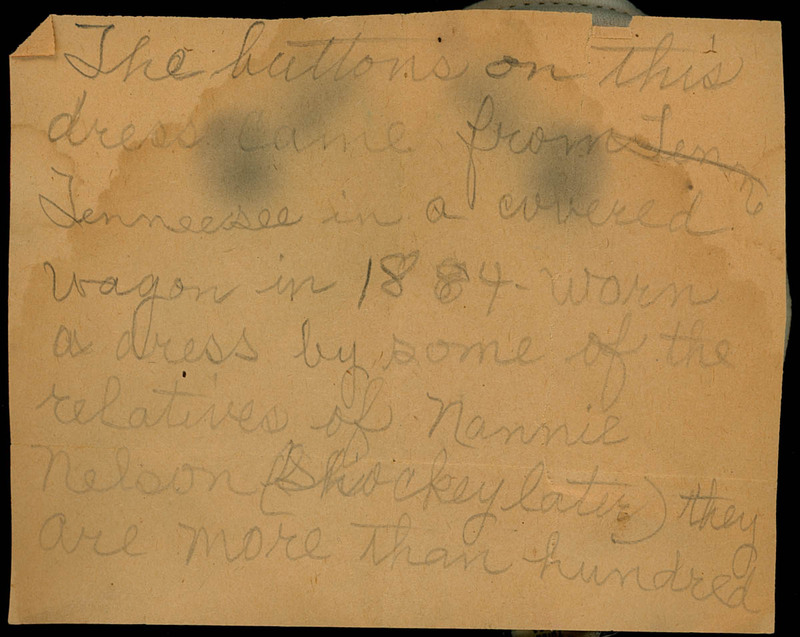 The buttons on this
dress came from Tenn
Tenneesee in a covered
wagon in 1884- worn
a dress by some of the
relatives of Nannie
Nelson (Shockey later) they
are more than hundred